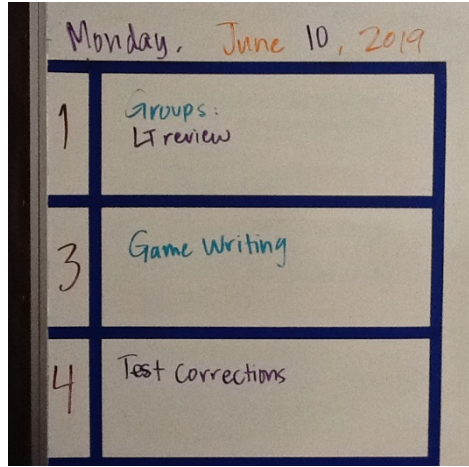 Monday, June 10, 2019
1
Groups:
LT review
3
Game Writing
4
Test Corrections